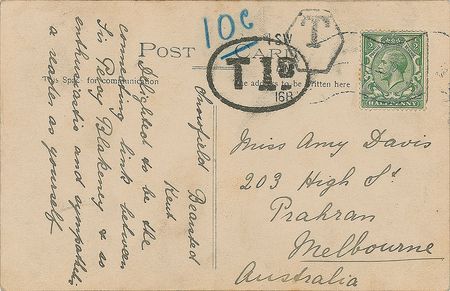 10c
T
POST CARD
NSW
T 1D
168
This Space for communication
The address to be written here
HALFPENNY
Snowfield
Bearsted
Kent
Delighted to be the
connecting link between
Sir Percy Blakeney & so
enthusiastic and sympathetic
a reader as yourself.
Miss Amy Davis
203 High St
Prahran
Melbourne
Australia